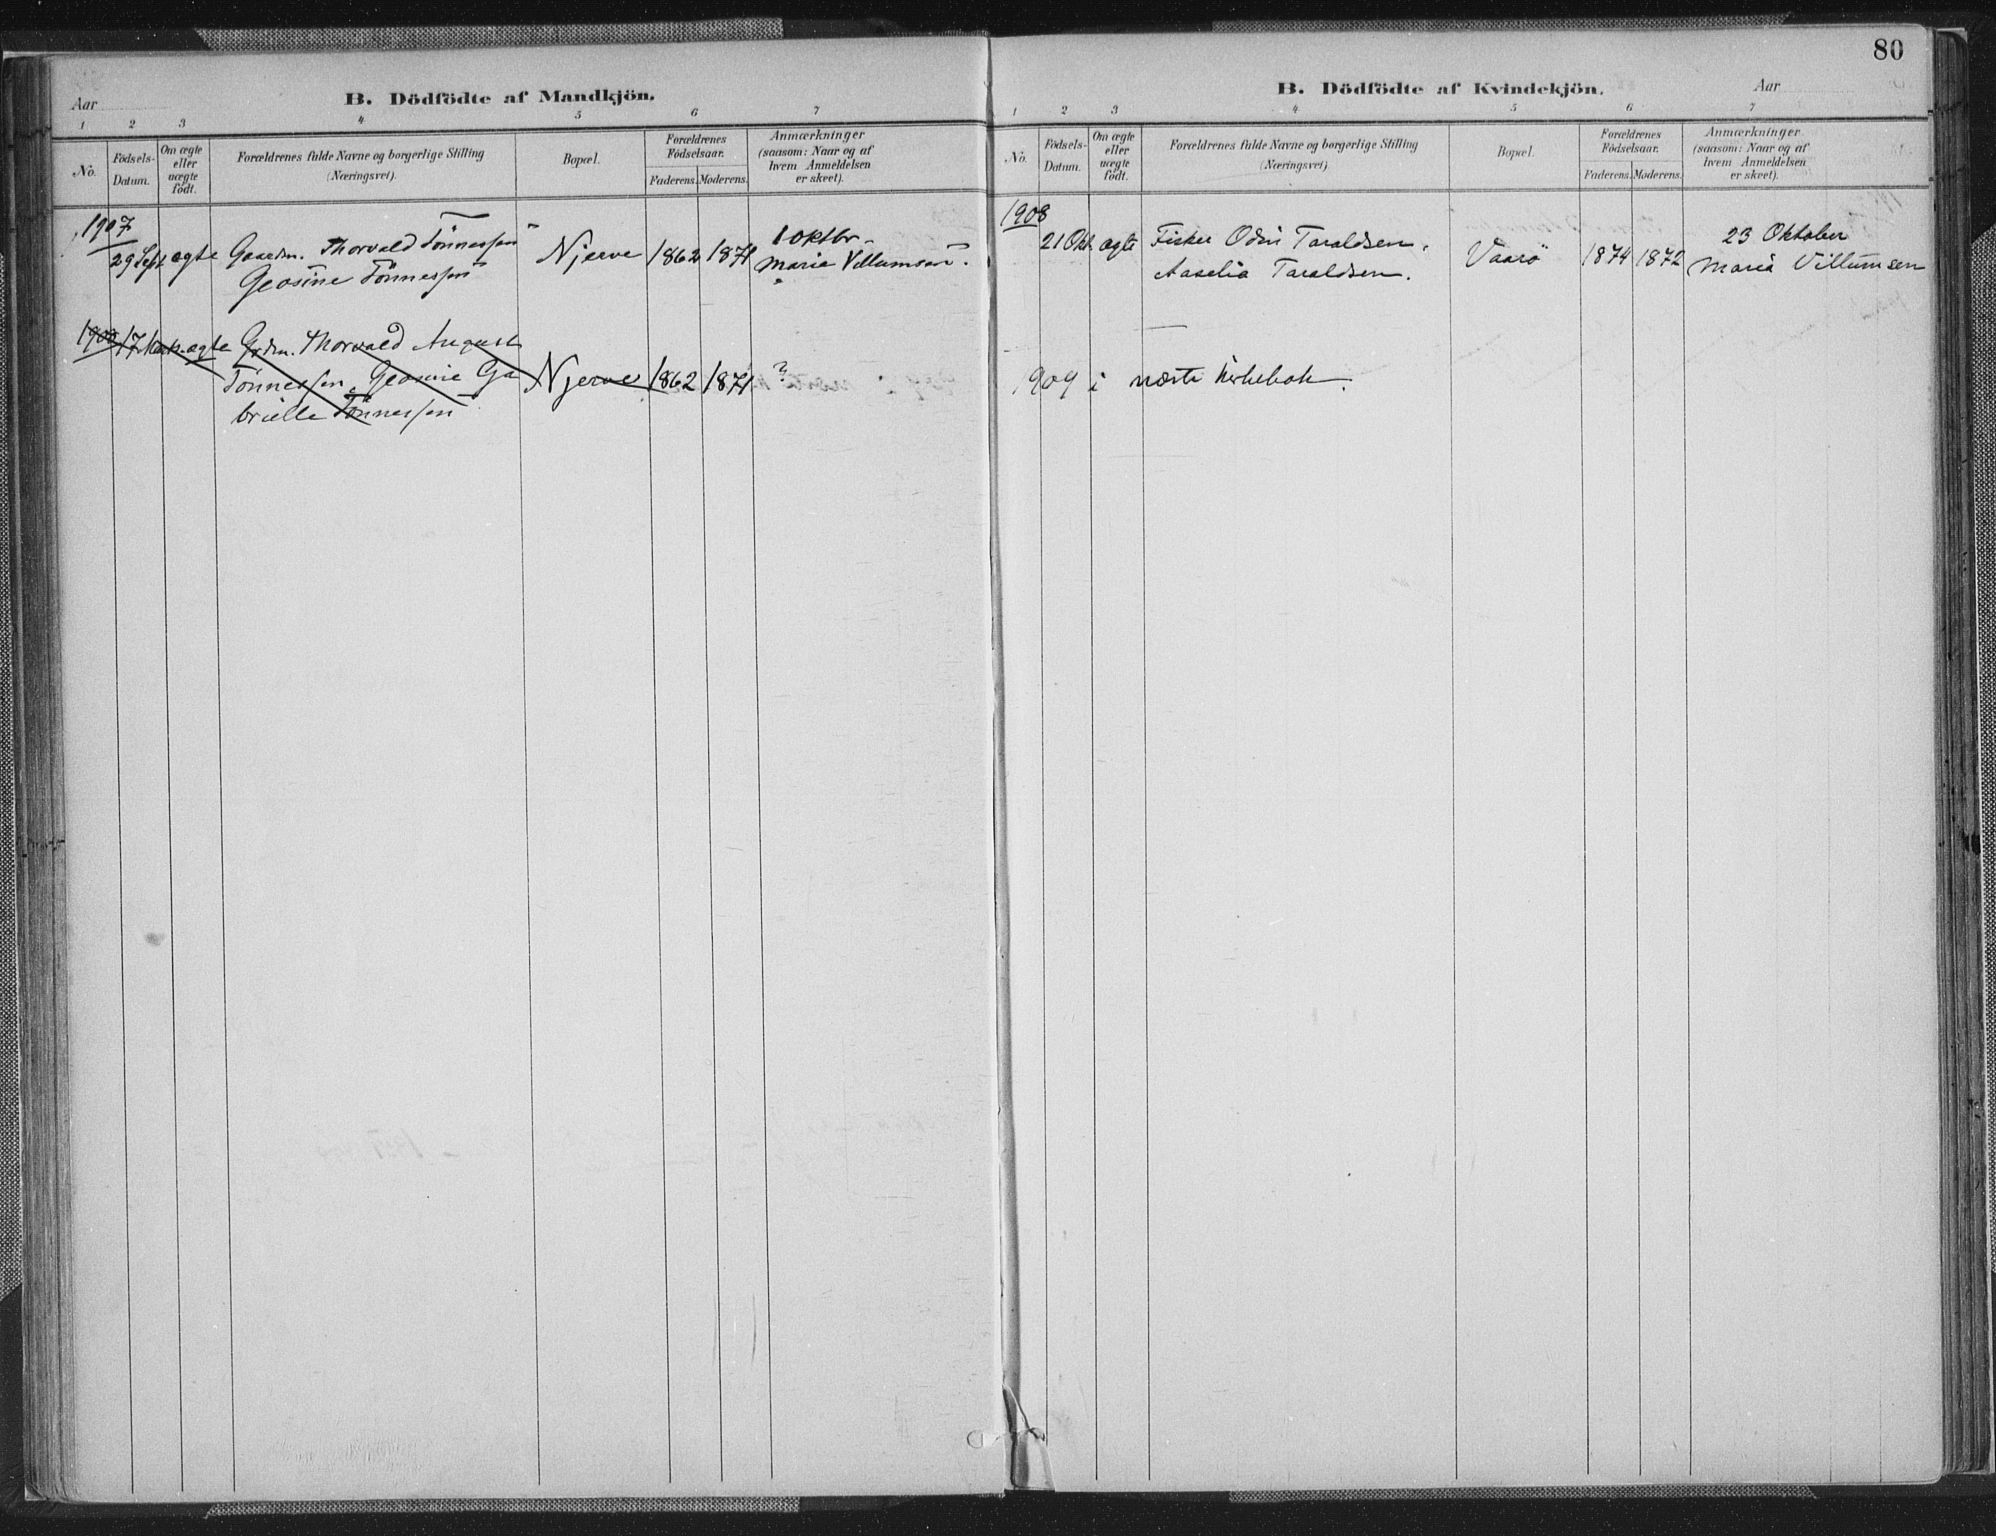 Aar
B. Dödfödte af Mandkjön.
1 2 3 4 5 6 7
No.
Födsels-
Datum.
Om ægte
eller
uægte
födt.
Forældrenes fulde Navne og borgerlige Stilling
(Næringsvei).
Bopæl.
Forældrenes
Födselsaar.
Faderens. Moderens.
Anmærkninger
(saasom: Naar og af
hvem Anmeldelsen
er skeet).
1907
29 Sept ægte Gaardm. Thorvald Tönnessen Njerve 1862 1871 1 oktbr.
Geosine Tönnessen Marie Villumsen.
17 ægte Grdm. Thorvald August
Tönnessen, Geosine Ga Njerve 1862 1871 ?
brielle Tönnessen
80
B. Dödfödte af Kvindekjön.
Aar
1 2 3 4 5 6 7
No.
Födsels-
Datum.
Om ægte
eller
uægte
födt.
Forældrenes fulde Navne og borgerlige Stilling
(Næringsvei)
Bopæl.
Forældrenes
Födselsaar.
Faderens. Moderens.
Anmærkninger
(saasom: Naar og af
hvem Anmeldelsen
er skeet).
1908
21 Okt ægte Fisker Odin Taraldsen. Vaarö 1874 1872 23 Oktober
Aaselia Taraldsen. Maria Villumsen
1909 i næste kirkebok.